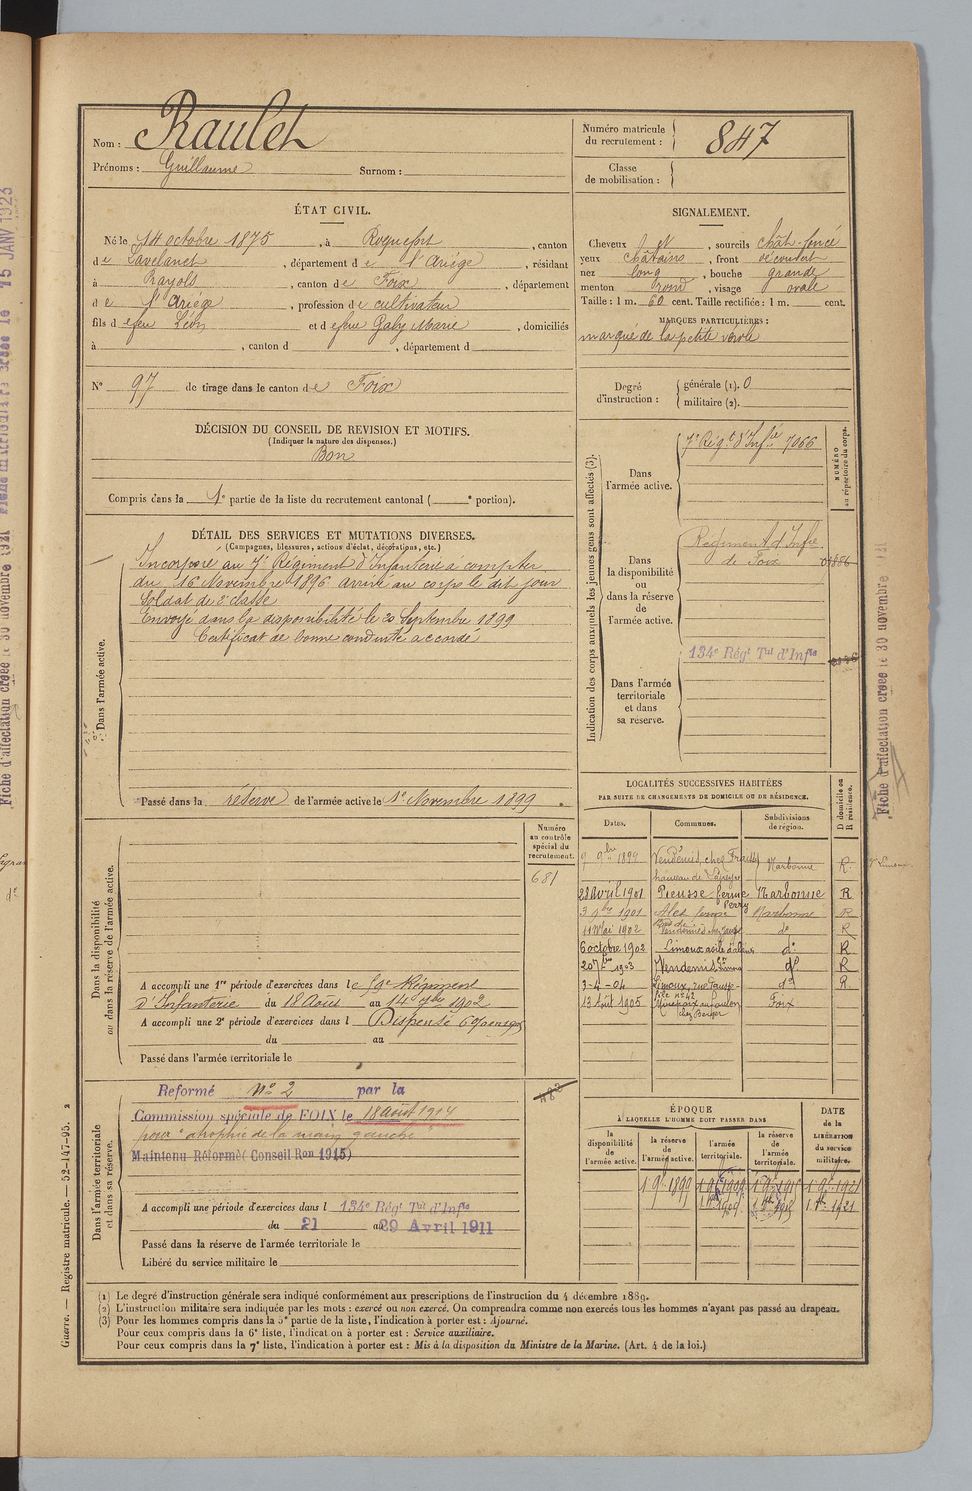 Nom : Raulet
Prénoms : Guillaume Surnom :
Numéro matricule du recrutement : 847
Classe de mobilisation :
ÉTAT CIVIL.
Né le 14 octobre 1875, à Roquefort, canton
de Lavelanet, département de l'Ariège, résidant
à , canton de Foix, département
de l'Ariège, profession de cultivateur
fils de feu Léon et de feue Gaby Marie, domiciliés
à , canton d , département d
N° 97 de tirage dans le canton de Foix
DÉCISION DU CONSEIL DE REVISION ET MOTIFS.
(Indiquer la nature des dispenses.)
Bon
Compris dans la 1e partie de la liste du recrutement cantonal ( e portion).
SIGNALEMENT.
Cheveux et , sourcils chât-foncé
yeux châtains , front découvert
nez long , bouche grande
menton rond , visage ovale
Taille : 1 m. 60 cent. Taille rectifiée : 1 m. cent.
MARQUES PARTICULIÈRES :
marqué de la petite vérole
Degré d'instruction : générale (1). 0
militaire (2).
DÉTAIL DES SERVICES ET MUTATIONS DIVERSES.
(Campagnes, blessures, actions d'éclat, décorations, etc.)
Dans l'armée active.
Incorporé au 7e Régiment d'Infanterie à compter
du 16 Novembre 1896 arrivé au corps le dit jour
Soldat de 2e classe
Envoyé dans la disponibilité le 20 Septembre 1899
Certificat de bonne conduite accordé
Passé dans la réserve de l'armée active le 1er Novembre 1899
Indication des corps auxquels les jeunes gens sont affectés (3).
NUMÉRO au répertoire du corps.
Dans l'armée active.
7e Régt d'Infie 7066
Dans la disponibilité ou dans la réserve de l'armée active.
Régiment d'Infie
de Foix
Dans l'armée territoriale et dans sa réserve.
134e Régt Tal d'Infie
LOCALITÉS SUCCESSIVES HABITÉES
PAR SUITE DE CHANGEMENTS DE DOMICILE OU DE RÉSIDENCE.
Dates. Communes. Subdivisions de région. D domicile ou R résidence.
9 9bre 1899 Vendémis, chez Narbonne R.
28 avril 1901 Pieusse ferme Narbonne R
3 9bre 1901 Alet ferme Narbonne R
11 Mai 1902 do R
6 octobre 1902 Limoux asile d'aliénés do R
1903 Vendemis do R
3-4-04 Limoux, rue do R.
13 Août 1905 Mirepoix Foix
chez Berger
Dans la disponibilité ou dans la réserve de l'armée active.
Numéro au contrôle spécial du recrutement.
681
A accompli une 1re période d'exercices dans le Régiment
d'Infanterie du 18 Août au 14 7bre 1902
A accompli une 2e période d'exercices dans l Dispensé
du au
Passé dans l'armée territoriale le
Dans l'armée territoriale et dans sa réserve.
Reformé no 2 par la
Commission spéciale de FOIX le 18 août 1914
pour "atrophie de la main gauche
Maintenu Réformé (Conseil Ron 1915)
A accompli une période d'exercices dans l 134e Régt Tal d'Infie
du 21 au 29 Avril 1911
Passé dans la réserve de l'armée territoriale le
Libéré du service militaire le
ÉPOQUE
À LAQUELLE L'HOMME DOIT PASSER DANS
DATE de la LIBÉRATION du service militaire.
la disponibilité de l'armée active. la réserve de l'armée active. l'armée territoriale. la réserve de l'armée territoriale.
1 9e 1899 1 9e 1909 1 9e 1915 1 9e 1921
(1) Le degré d'instruction générale sera indiqué conformément aux prescriptions de l'instruction du 4 décembre 1889.
(2) L'instruction militaire sera indiquée par les mots : exercé ou non exercé. On comprendra comme non exercés tous les hommes n'ayant pas passé au drapeau.
(3) Pour les hommes compris dans la 5e partie de la liste, l'indication à porter est : Ajourné.
Pour ceux compris dans la 6e liste, l'indication à porter est : Service auxiliaire.
Pour ceux compris dans la 7e liste, l'indication à porter est : Mis à la disposition du Ministre de la Marine. (Art. 4 de la loi.)
Guerre. — Registre matricule. — 52-147-95. 2
Fiche d'affectation créée le 30 novembre 1921
Fiche matriculaire créée le 15 JANV 1923
Fiche d'affectation créée le 30 novembre 121